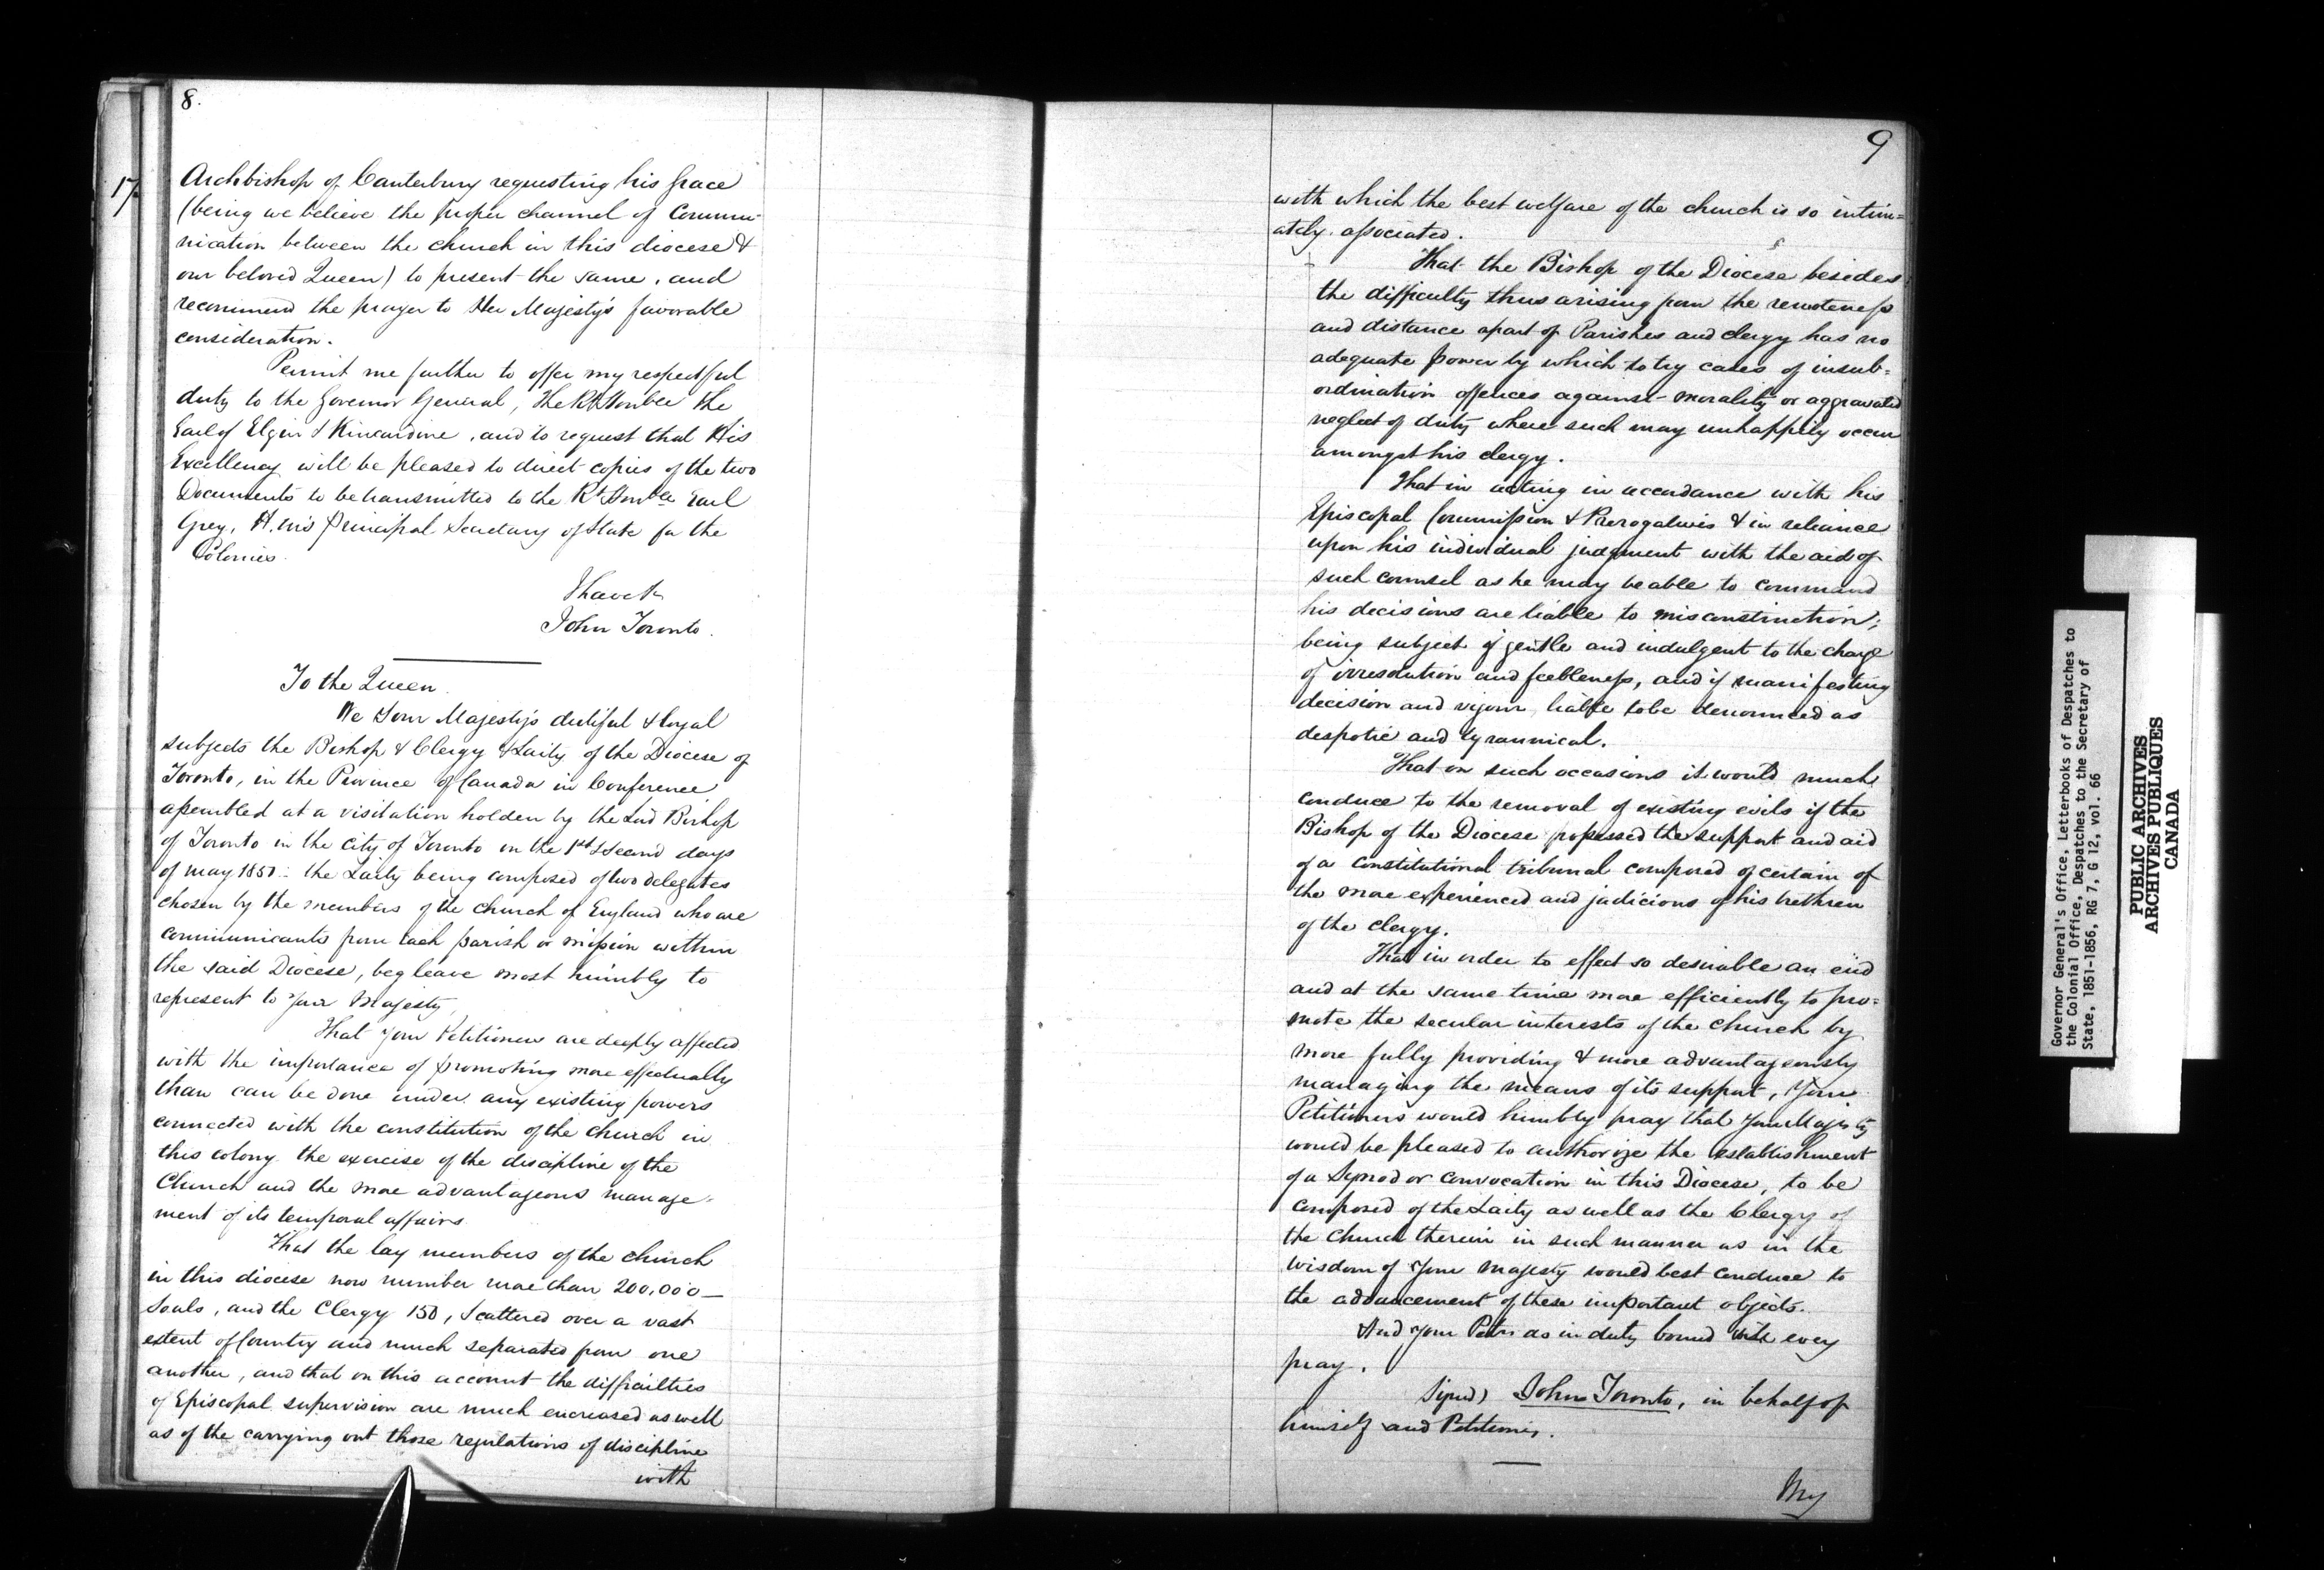 8.
17
Archbishop of Canterbury requesting his Grace
(being we believe the proper channel of Commu-
nication between the church in this diocese &
our beloved Queen) to present the same, and
recommend the prayer to Her Majesty's favorable
consideration.
Permit me further to offer my respectful
duty to the Governor General, The Rt Honble the
Earl of Elgin & Kincardine, and to request that His
Excellency will be pleased to direct copies of the two
Documents to be transmitted to the Rt Honble Earl
Grey, H. M's Principal Secretary of State for the
Colonies.
I have &c
John Toronto.
To the Queen.
We Your Majesty's dutiful & loyal
subjects the Bishop & Clergy & Laity of the Diocese of
Toronto, in the Province of Canada in Conference
assembled at a visitation holden by the Lord Bishop
of Toronto in the city of Toronto on the 1st & Second days
of may 1851 - the Laity being composed of two delegates
chosen by the members of the church of England who are
communicants from each parish or mission within
the said Diocese, beg leave most humbly to
represent to your Majesty,
That your Petitioners are deeply affected
with the importance of promoting more effectually
than can be done under any existing powers
connected with the constitution of the church in
this colony the exercise of the discipline of the
Church and the more advantageous manage-
ment of its temporal affairs
That the lay members of the church
in this diocese now number more than 200,000 —
Souls, and the Clergy 150, scattered over a vast
extent of Country and much separated from one
another, and that on this account the difficulties
of Episcopal supervision are much encreased as well
as of the carrying out those regulations of discipline
with
9
with which the best welfare of the church is so intim=
ately associated.
That the Bishop of the Diocese besides
the difficulty thus arising from the remoteness
and distance apart of Parishes and clergy has no
adequate power by which to try cases of insub=
ordination offences against morality or aggravated
neglect of duty where such may unhappily occur
amongst his clergy.
That in acting in accordance with his
Episcopal Commission & Prerogatives & in reliance
upon his individual judgment with the aid of
such counsel as he may be able to command
his decisions are liable to misconstruction;
being subject if gentle and indulgent to the charge
of irresolution and feebleness, and if manifesting
decision and vigour, liable to be denounced as
despotic and tyrannical.
That on such occasions it would much
conduce to the removal of existing evils if the
Bishop of the Diocese possessed the support and aid
of a constitutional tribunal composed of certain of
the more experienced and judicious of his brethren
of the clergy.
That in order to effect so desirable an end
and at the same time more efficiently to pro=
mote the secular interests of the church by
more fully providing & more advantageously
managing the means of its support, Your
Petitioners would humbly pray that your Majesty
would be pleased to authorize the establishment
of a Synod or convocation in this Diocese, to be
composed of the Laity as well as the Clergy of
the Church therein in such manner as in the
wisdom of your Majesty would best conduce to
the advancement of these important objects.
And your Petrs as in duty bound will every
pray.
Signed) John Toronto, in behalf of
himself and Petitioners.
My
Governor General's Office, Letterbooks of Despatches to
the Colonial Office, Despatches to the Secretary of
State, 1851-1856, RG 7, G 12, vol. 66
PUBLIC ARCHIVES
ARCHIVES PUBLIQUES
CANADA